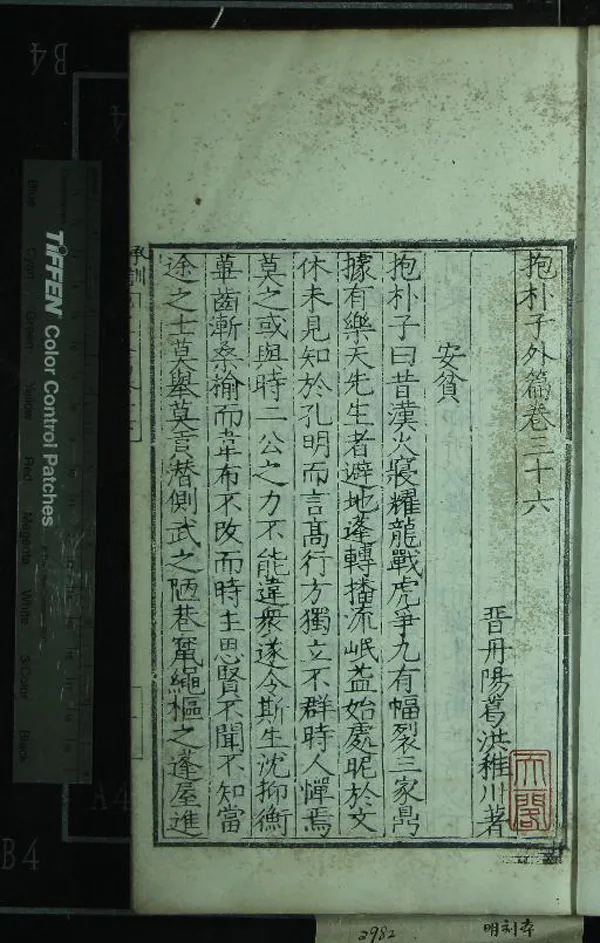 抱朴子外篇卷三十六
晋丹陽葛洪稚川著
安貧
抱朴子曰昔漢火寢耀龍戰虎爭九有幅裂三家鼎
據有樂天先生者避地蓬轉播流岷益始處昵於文
休未見知於孔明而言高行方獨立不群時人憚焉
莫之或與時二公之力不能違衆遂令斯生沈抑衡
蓽齒漸桑榆而韋布不改而時主思賢不聞不知當
途之士莫舉莫貢潜側武之陋巷竄繩樞之蓬屋進
承訓
天
閣
B4
A4
B4
TIFFEN Color Control Patches
Blue
Cyan
Green
Yellow
Red
Magenta
White
3/Color
Black
2982
明刻本